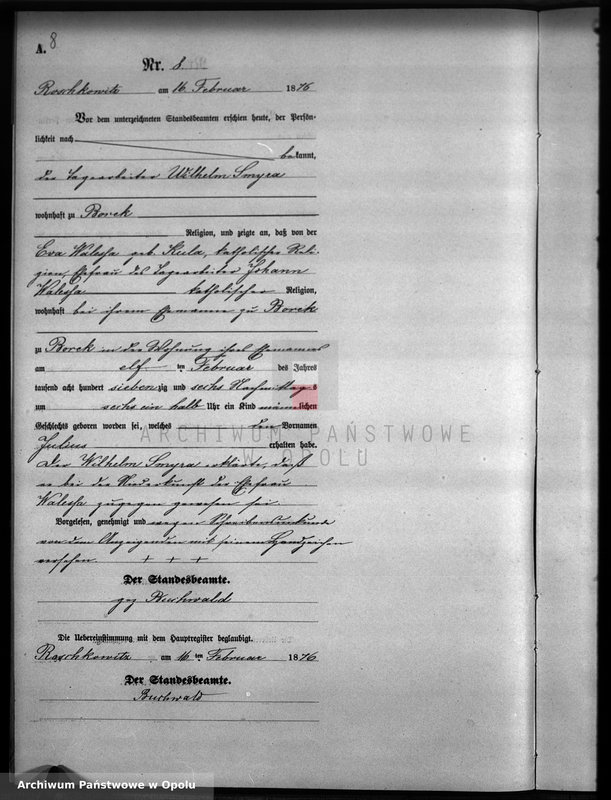 A. 8
Nr. 8.
Roschkowitz am 16. Februar 1876
Vor dem unterzeichneten Standesbeamten erschien heute, der Persön-
lichkeit nach
bekannt,
der Tagearbeiter Wilhelm Smyra
wohnhaft zu Borek
Religion, und zeigte an, daß von der
Eva Walessa geb. Kula, katholischer Reli-
gion, Ehefrau des Tagearbeiter Johann
Walessa katholischer Religion,
wohnhaft bei ihrem Ehemanne zu Borek
zu Borek in der Wohnung ihres Ehemannes
am elf ten Februar des Jahres
tausend acht hundert siebenzig und sechs Nachmittags
um sechs ein halb Uhr ein Kind männlichen
Geschlechts geboren worden sei, welches den Vornamen
Julius erhalten habe.
Der Wilhelm Smyra erklärte, daß
er bei der Niederkunft der Ehefrau
Walessa zugegen gewesen sei.
Vorgelesen, genehmigt und wegen Schreibensunkunde
von dem Anzeigenden mit seinem Handzeichen
versehen. + + +
Der Standesbeamte.
gez Buchwald
Die Uebereinstimmung mit dem Hauptregister beglaubigt.
Roschkowitz am 16 ten Februar 1876
Der Standesbeamte.
Buchwald
ARCHIWUM PAŃSTWOWE
W OPOLU
Archiwum Państwowe w Opolu